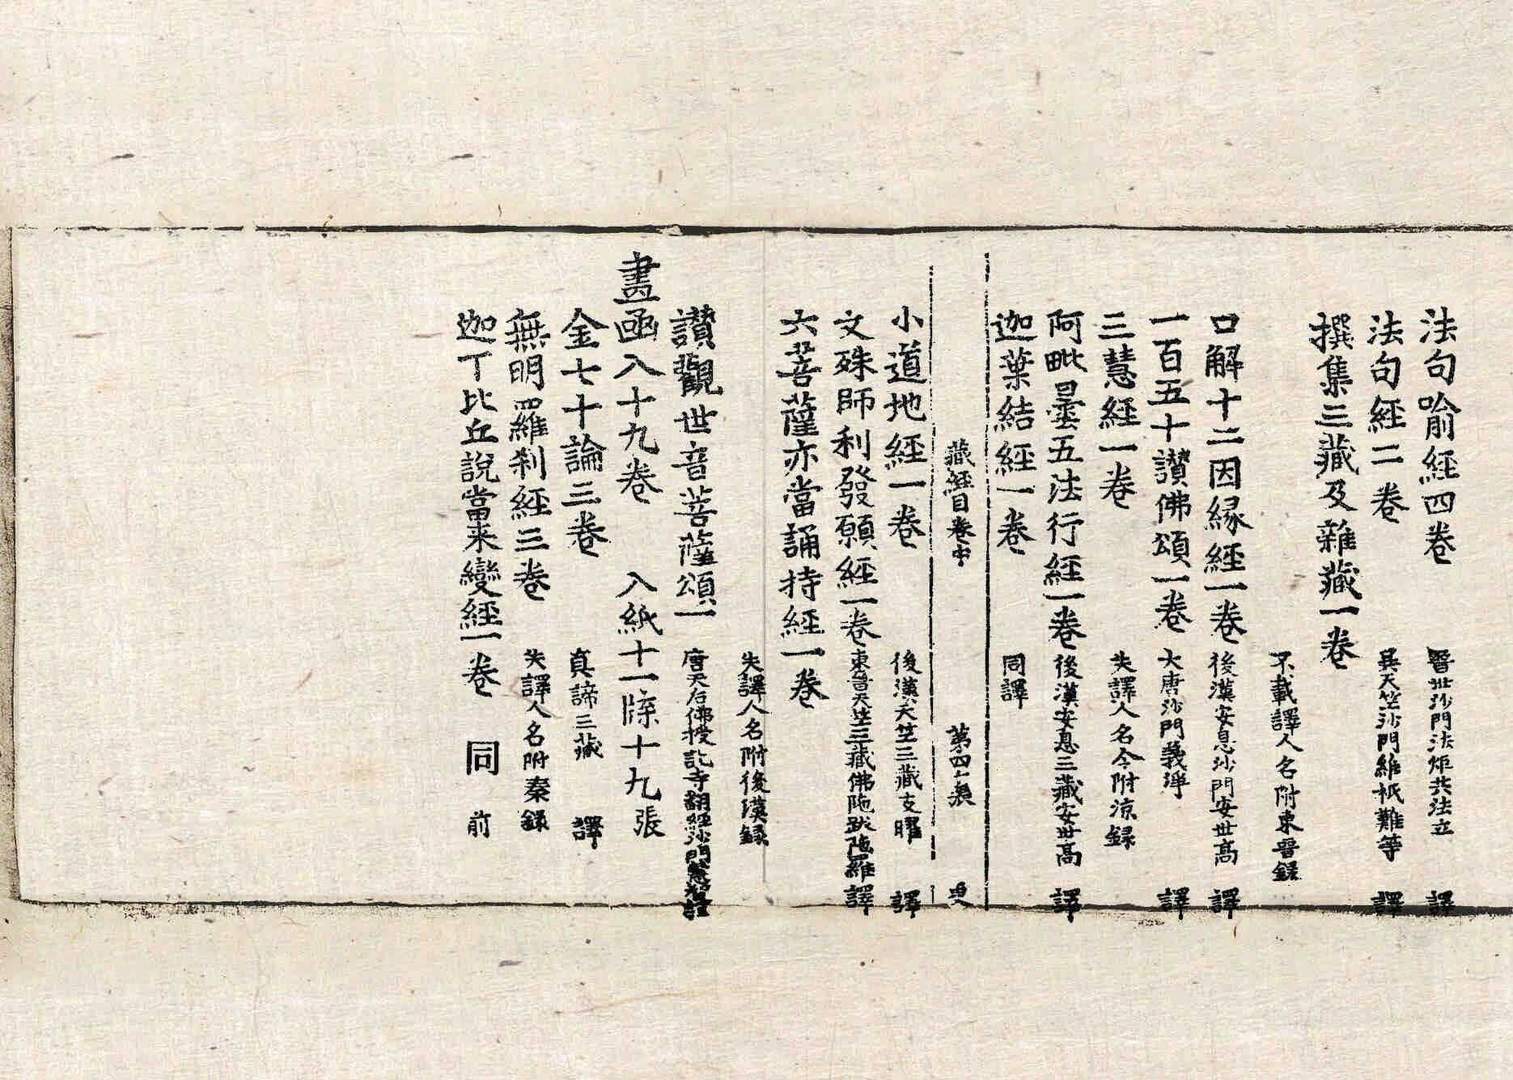 法句喻經四卷 晉世沙門法炬共法立 譯
法句經二卷 吳天竺沙門維祇難等 譯
撰集三藏及雜藏一卷
不載譯人名附東晉録
口解十二因緣經一卷 後漢安息沙門安世高 譯
一百五十讚佛頌一卷 大唐沙門義淨 譯
三慧經一卷 失譯人名今附涼録
阿毗曇五法行經一卷 後漢安息三藏安世高 譯
迦葉結經一卷 同譯
藏經目卷中 第四十張
小道地經一卷 後漢天竺三藏支曜 譯
文殊師利發願經一卷 東晉天竺三藏佛陁跋陁羅 譯
六菩薩亦當誦持經一卷
失譯人名附後漢録
讚觀世音菩薩頌一 唐天后佛授記寺翻經沙門慧智譯
畫函入十九卷 入紙十一牒十九張
金七十論三卷 真諦三藏 譯
無明羅刹經三卷 失譯人名附秦録
迦丁比丘說當来變經一卷 同前